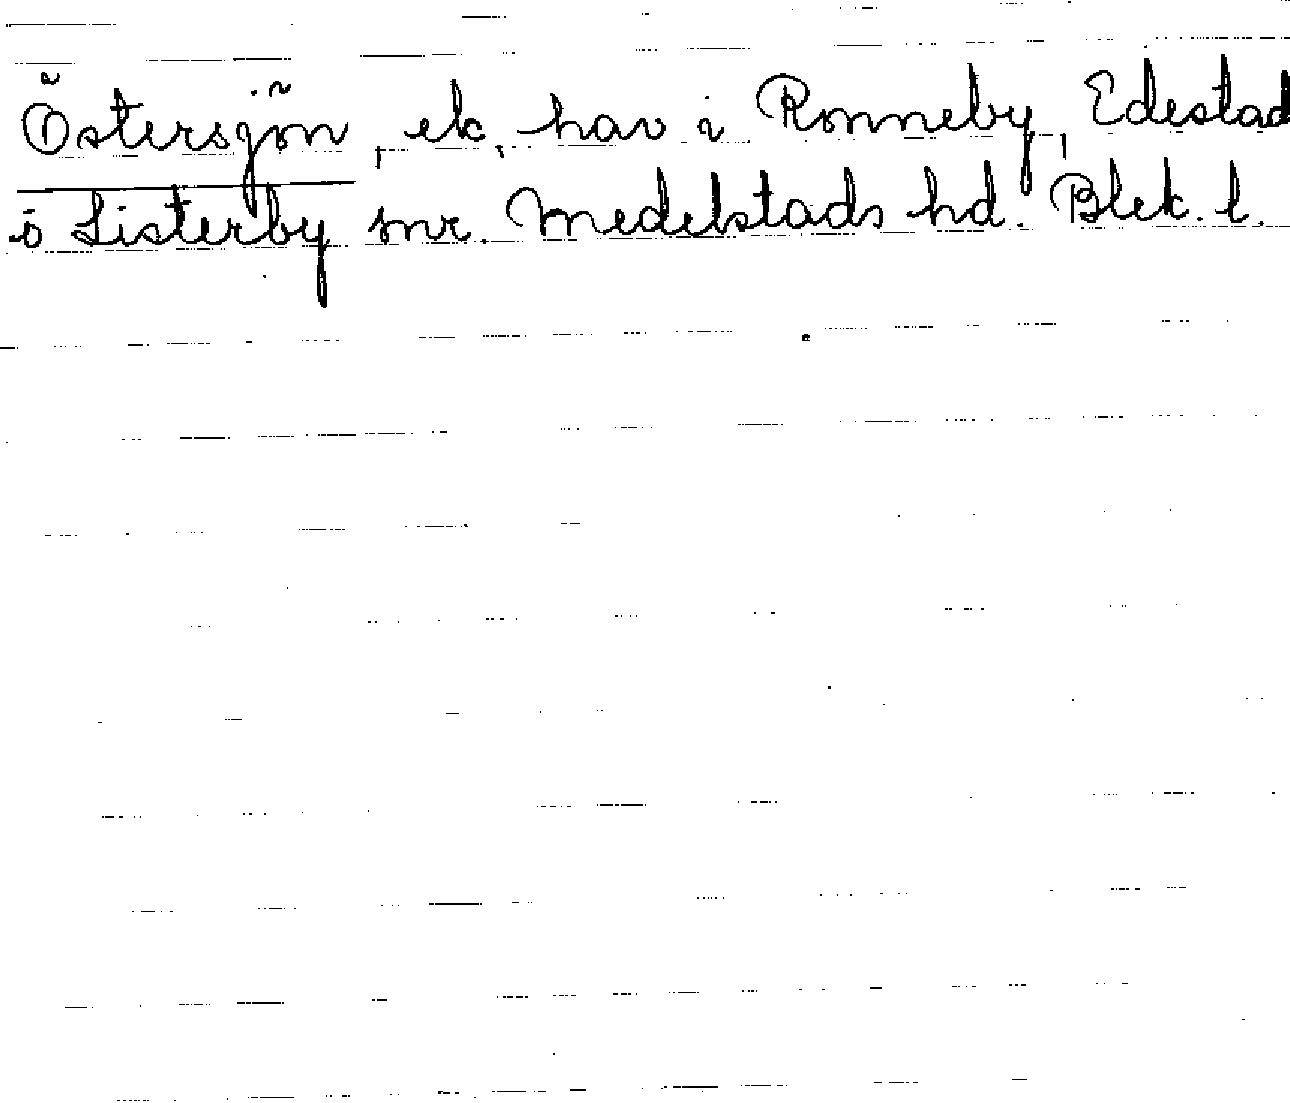 Östersjön, ek, hav i Ronneby, Edestad
ö Listerby snr. Medelstads hd. Blek. l.